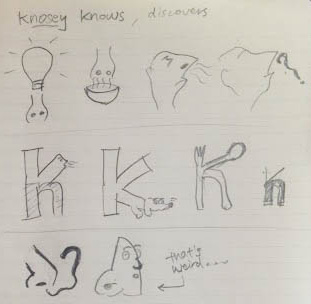 Knosey knows, discovers
K K K K
?
that's
weird....